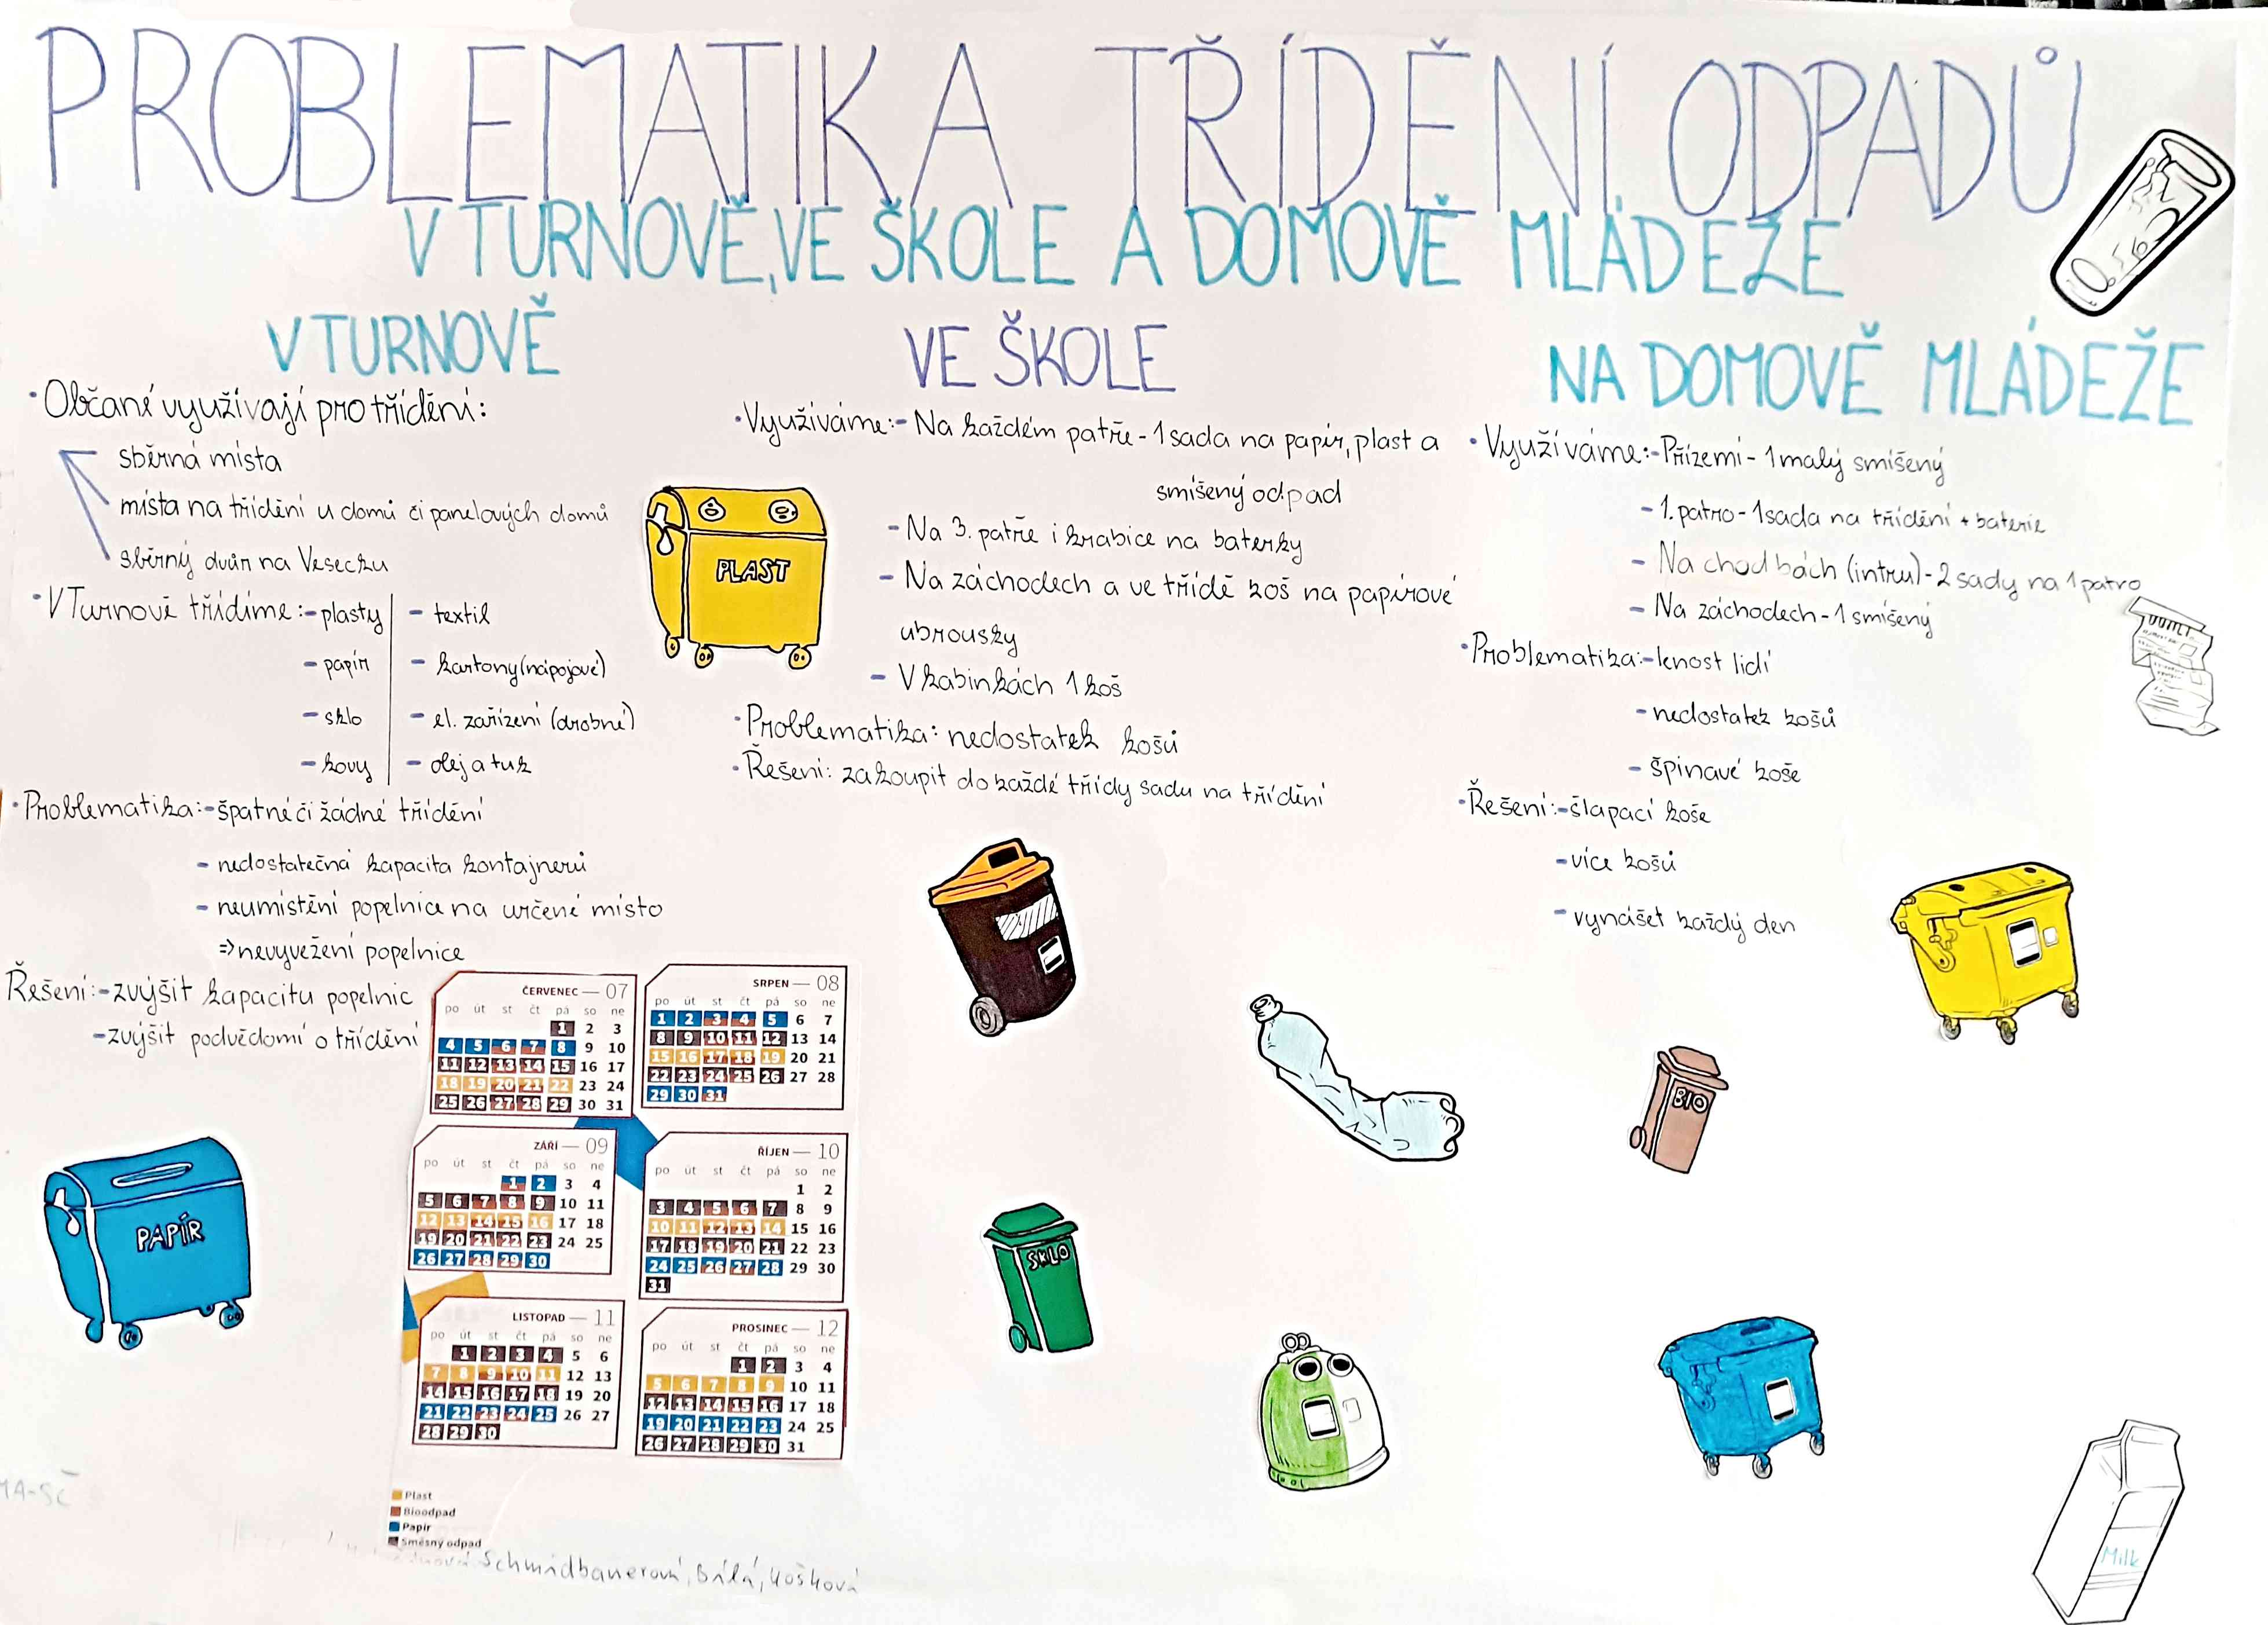 PROBLEMATIKA TŘÍDĚNÍ ODPADŮ
V TURNOVĚ, VE ŠKOLE A DOMOVĚ MLÁDEŽE
V TURNOVĚ
• Občané využívají pro třídění:
sběrná místa
místa na třídění u domů či panelových domů
sběrný dvůr na Vesecku
• V Turnově třídíme: - plasty - textil
- papír - kartony (nápojové)
- sklo - el. zařízení (drobné)
- kovy - olej a tuk
• Problematika: - špatné či žádné třídění
- nedostatečná kapacita kontajnerů
- neumístění popelnice na určené místo
=> nevyvežení popelnice
Řešení: - zvýšit kapacitu popelnic
- zvýšit podvědomí o třídění
VE ŠKOLE
• Využíváme: - Na každém patře - 1 sada na papír, plast a
smíšený odpad
- Na 3. patře i krabice na baterky
- Na záchodech a ve třídě koš na papírové
ubrousky
- V kabinkách 1 koš
• Problematika: nedostatek košů
• Řešení: zakoupit do každé třídy sadu na třídění
NA DOMOVĚ MLÁDEŽE
• Využíváme: - Přízemí - 1 malý smíšený
- 1. patro - 1 sada na třídění + baterie
- Na chodbách (intru) - 2 sady na 1 patro
- Na záchodech - 1 smíšený
• Problematika: - lenost lidí
- nedostatek košů
- špinavé koše
• Řešení: - šlapací koše
- více košů
- vynášet každý den
PLAST
PAPÍR
SKLO
BIO
Milk
ČERVENEC — 07
po út st čt pá so ne
1 2 3
4 5 6 7 8 9 10
11 12 13 14 15 16 17
18 19 20 21 22 23 24
25 26 27 28 29 30 31
SRPEN — 08
po út st čt pá so ne
1 2 3 4 5 6 7
8 9 10 11 12 13 14
15 16 17 18 19 20 21
22 23 24 25 26 27 28
29 30 31
ZÁŘÍ — 09
po út st čt pá so ne
1 2 3 4
5 6 7 8 9 10 11
12 13 14 15 16 17 18
19 20 21 22 23 24 25
26 27 28 29 30
ŘÍJEN — 10
po út st čt pá so ne
1 2
3 4 5 6 7 8 9
10 11 12 13 14 15 16
17 18 19 20 21 22 23
24 25 26 27 28 29 30
31
LISTOPAD — 11
po út st čt pá so ne
1 2 3 4 5 6
7 8 9 10 11 12 13
14 15 16 17 18 19 20
21 22 23 24 25 26 27
28 29 30
PROSINEC — 12
po út st čt pá so ne
1 2 3 4
5 6 7 8 9 10 11
12 13 14 15 16 17 18
19 20 21 22 23 24 25
26 27 28 29 30 31
Plast
Bioodpad
Papír
Směsný odpad
Schmidbauerová, Bílá, Košková